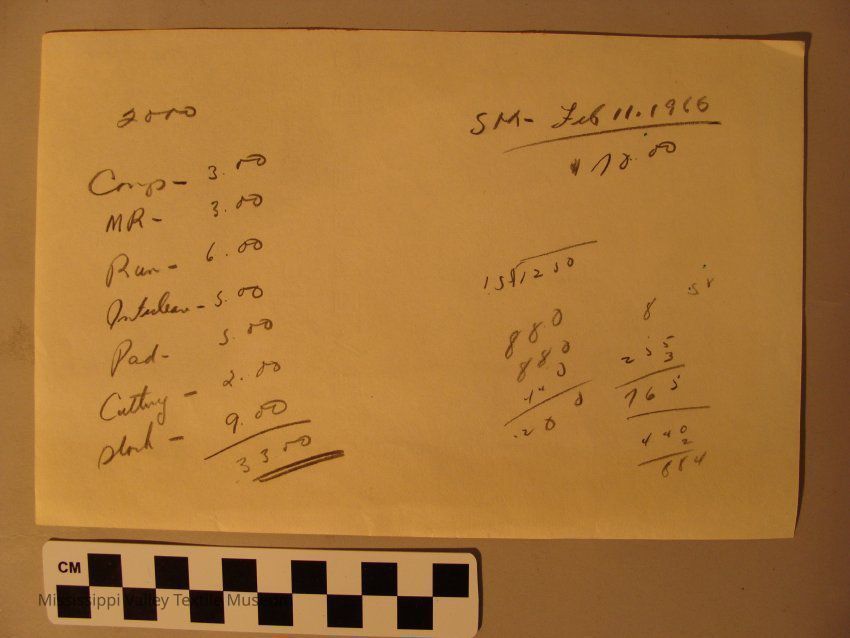 2000
Comp - 3.00
MR - 3.00
Run - 6.00
Interleav - 5.00
Pad - 5.00
Cutting - 2.00
Stock - 9.00
33 00
SM - Feb 11. 1966
18.00
15 1250
880
880
8
255
3
765
440
2
CM
Mississippi Valley Textile Museum